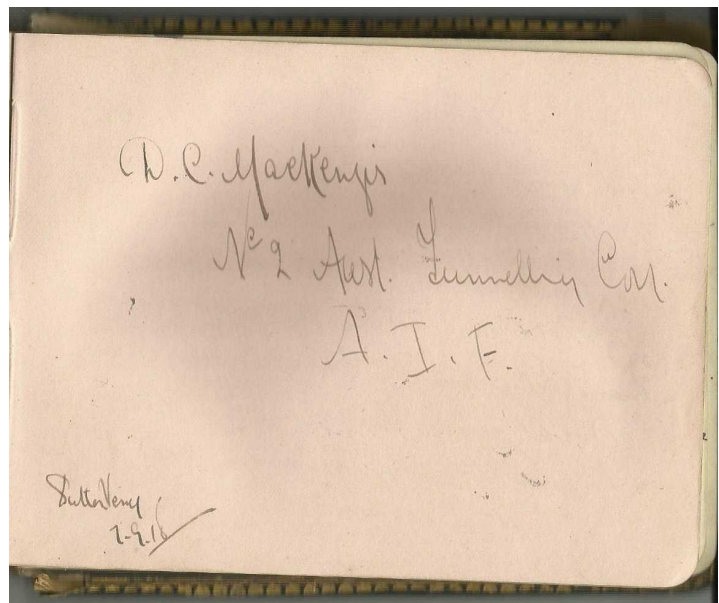 D. C. MacKenzie
No 2 Aust. Tunnelling Coy.
A. I. F.
Sutton Veny
7-9.16